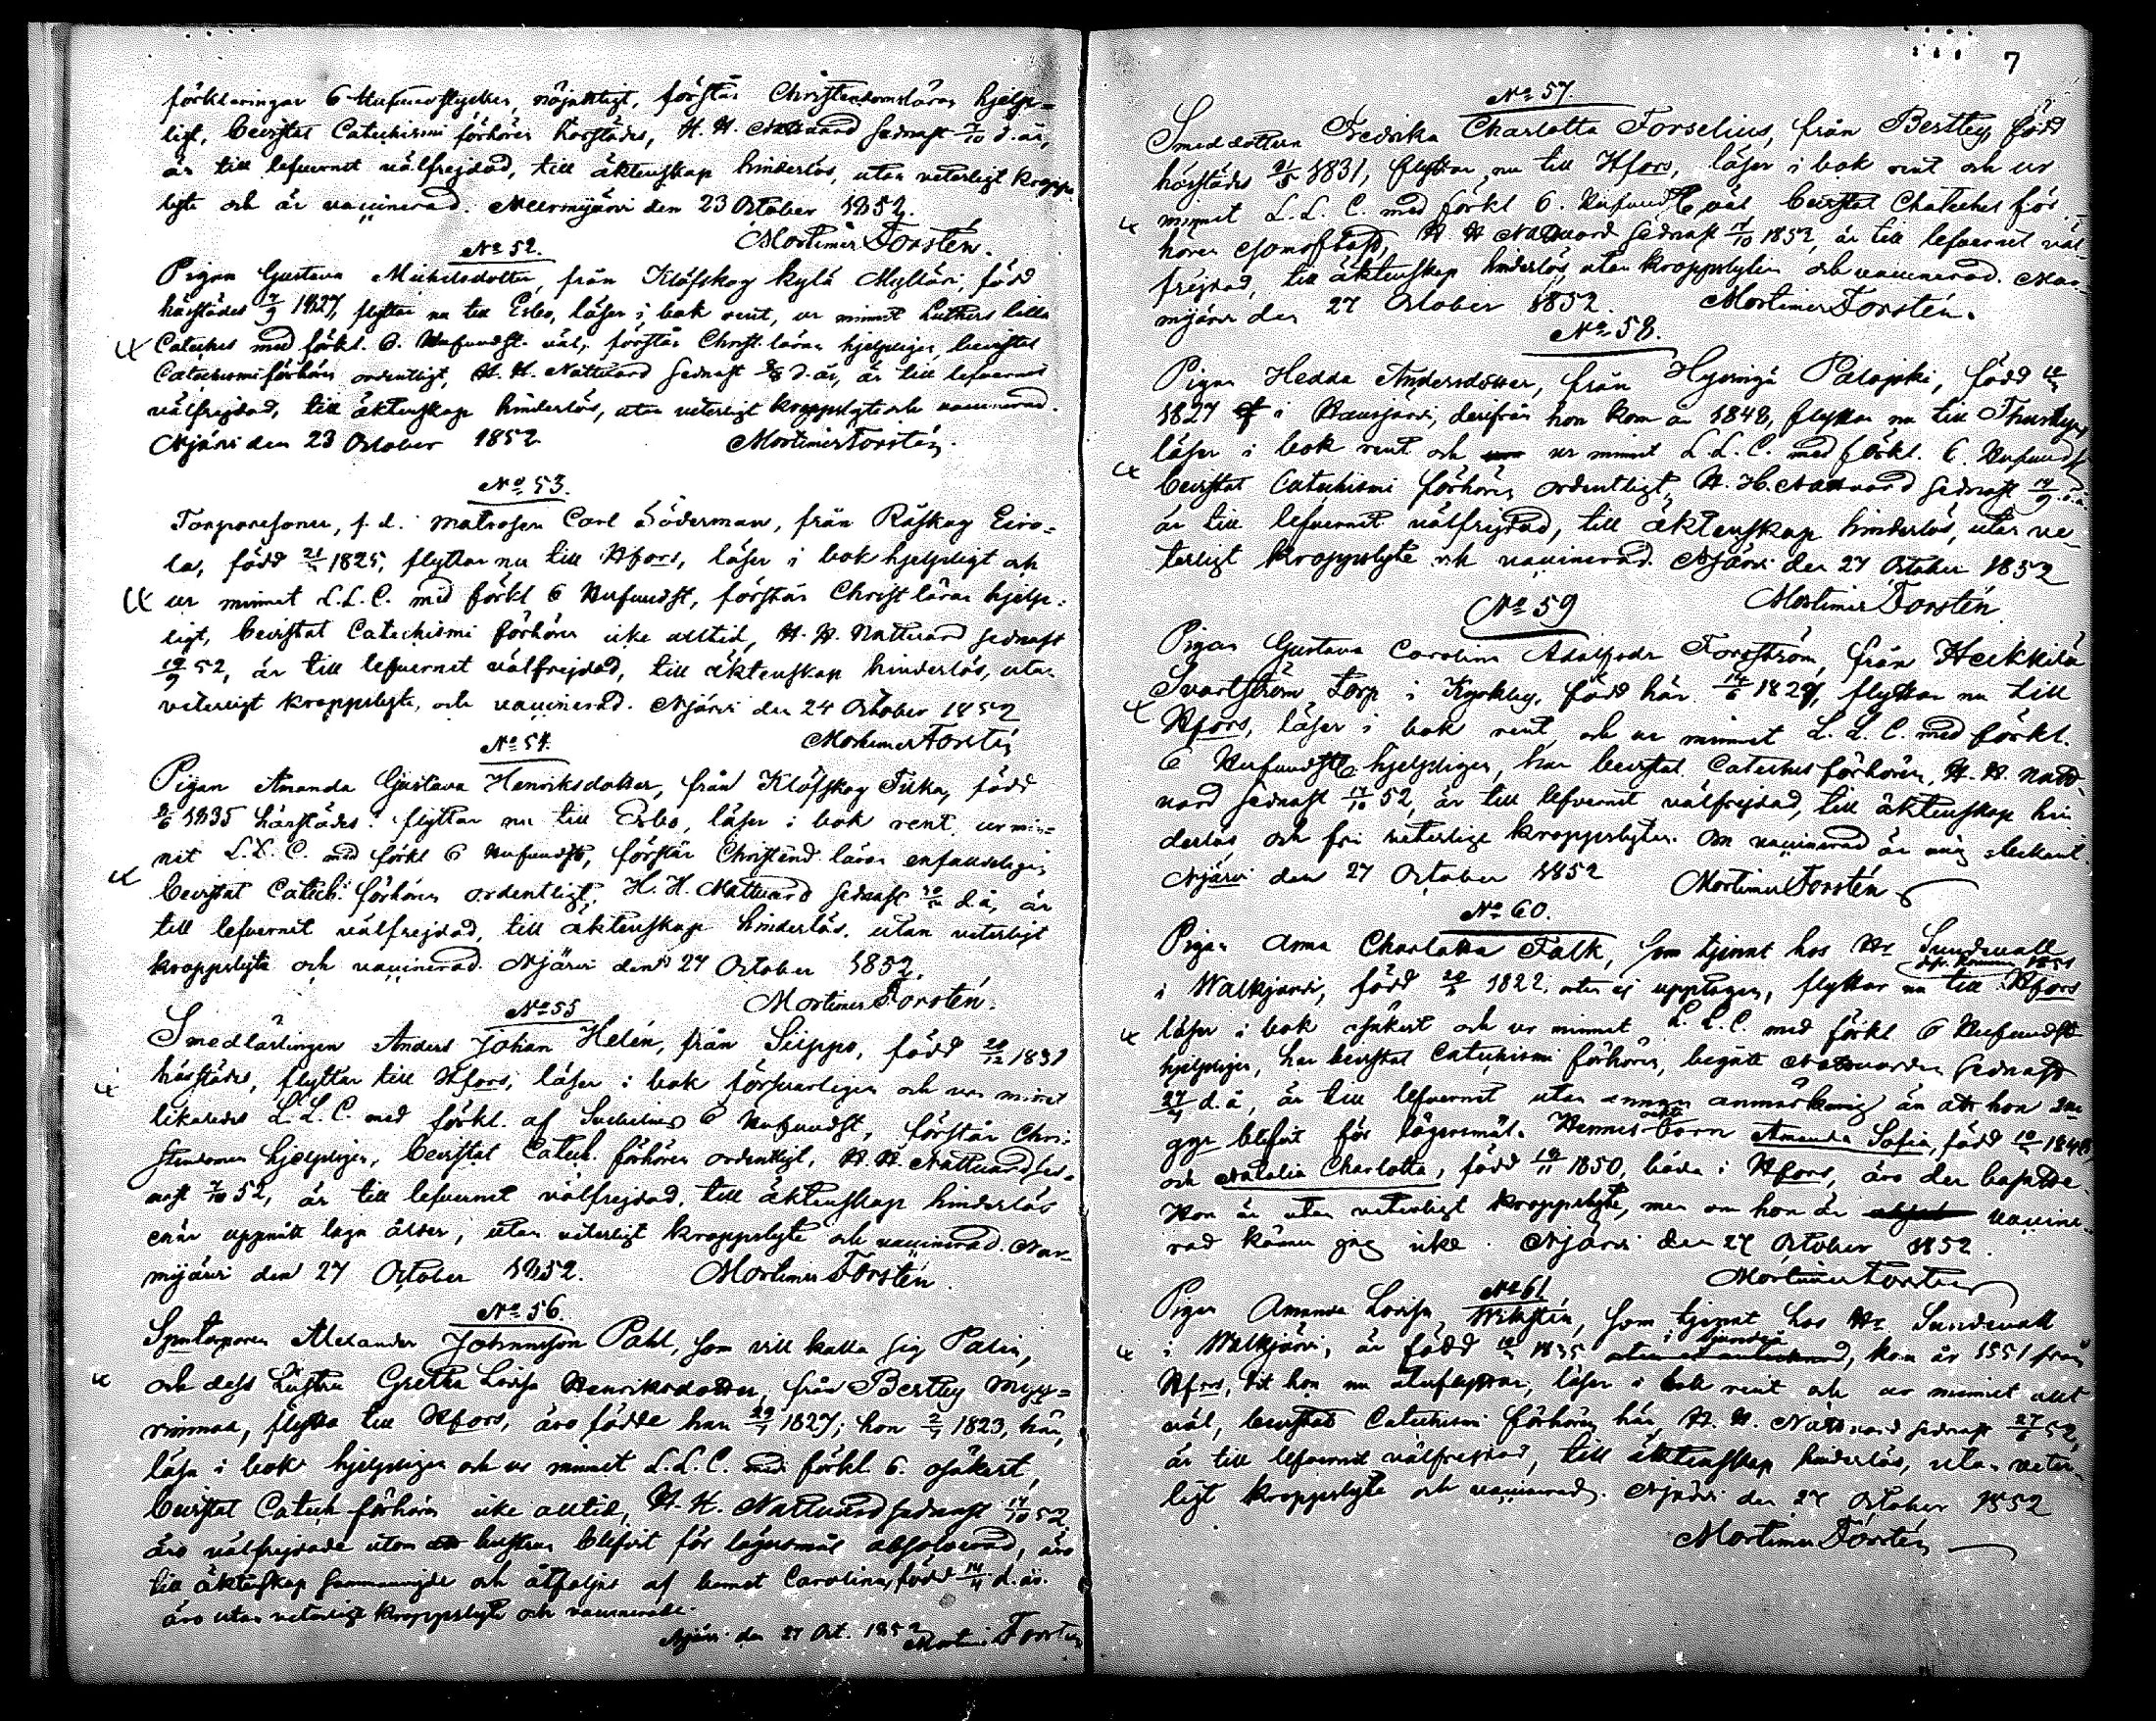 förklaringar 6 Hufvudstycken, nöjaktigt, förstår Christendomsläran hjelp=
ligt, bevistat Catechismi förhören härstädes, H. H. Nattvard sednast 3/10 d. år,
är till lefvernet välfrejdad, till äktenskap hinderlös, utan veterligt kropps
lyte och är vaccinerad. Nurmijärvi den 23 October 1852.
Mortimer Forstén.
No 52.
Pigan Gustava Michelsdotter, från Klöfskog kylä Mylläri, född
härstädes 1827, flyttar nu till Esbo, läser i bok rent, ur minnet Luthers lilla
Cateches med förkl. 6. Hufvudst. väl, förstår Christ. läran hjelpligen, bevistat
Catechismi förhören ordentligt, H. H. Nattvard sednast d. år, är till lefvernet
välfrejdad, till äktenskap hinderlös, utan veterligt kroppslyte och vaccinerad.
Njärvi den 23 October 1852
Mortimer Forstén.
No 53.
Torparesonen, f. d. matrosen Carl Söderman, från Råskog Eiro=
la, född 1825, flyttar nu till Hfors, läser i bok hjelpligt och
ur minnet L. L. C. med förkl 6 Hufvudst, förstår Christ läran hjelp=
ligt, bevistat Catechismi förhören icke alltid, H. H. Nattvard sednast
19/9 52, är till lefvernet välfrejdad, till äktenskap hinderlös, utan
veterligt kroppslyte, och vaccinerad. Njärvi den 24 October 1852
Mortimer Forstén
No 54.
Pigan Amanda Gustava Henriksdotter, från Klöfskog född
1835 härstädes. flyttar nu till Esbo, läser i bok rent, ur min=
net L. L. C. med förkl 6 Hufvudst, förstår Christend. läran enfaldeligen
bevistat Catech. förhören ordentligt, H. H. Nattvard sednast d. å, är
till lefvernet välfrejdad, till äktenskap hinderlös, utan veterligt
kroppslyte och vaccinerad. Njärvi den 27 October 1852.
Mortimer Forstén.
No 55
Smedlärlingen Anders Johan Helén, från Seippo, född 20/12 1831
härstädes, flyttar till Hfors, läser i bok försvarligen och ur minnet
likaledes L. L. C. med förkl. af 6 Hufvudst, förstår Chri=
stendomen hjelpligen, bevistat Catech. förhören ordentligt, H. H. Nattvard sed=
nast 3/10 52, är till lefvernet välfrejdad, till äktenskap hinderlös
enär uppnått laga ålder, utan veterligt kroppslyte och vaccinerad. Nur=
mijärvi den 27 October 1852.
Mortimer Forstén.
No 56.
Alexander Johansson Pahl, som vill kalla sig Palin,
och dess hustru Gretha Lovisa Henriksdotter, från Bertby Myy=
rinmaa, flytta till Hfors, äro födde han 1827; hon 1823, här,
läsa i bok hjelpligen och ur minnet L. L. C. med förkl. 6. osäkert,
bevistat Catech förhören icke alltid, H. H. Nattvard sednast 17/10 52,
äro välfrejdade utom hustrun blifvit för lägersmål absolverad, äro
till äktenskap sammanvigde och åtföljes af barnet Carolina, född 14/4 d. år.
äro utan veterligt kroppslyte och vaccinerade.
Njärvi den 27 Oct. 1852 Mortimer Forstén
7
No 57.
Smeddottern Fredrika Charlotta Forselius, från Bertby, född
härstädes 1831, flyttar nu till Hfors, läser i bok rent och ur
minnet L. L. C. med förkl 6. Hufvudst väl, bevistat Cateches för=
hören H. H. Nattvard sednast 17/10 1852, är till lefvernet väl=
frejdad, till äktenskap hinderlös, utan kroppslyten och vaccinerad. Nur=
mijärvi den 27 October 1852.
Mortimer Forstén.
No 58.
Pigan Hedda Andersdotter, från Hyvingä Palojoki, född
1827 i Hausjärvi, derifrån hon kom år 1848, flyttar nu till Thusby,
läser i bok rent och ur minnet L. L. C. med förkl. 6. Hufvudst
bevistat Catechismi förhören ordentligt, H. H. Nattvard sednast d. å.
är till lefvernet välfrejdad, till äktenskap hinderlös, utan ve=
terligt kroppslyte och vaccinerad. Njärvi den 27 October 1852
Mortimer Forstén
No 59
Pigan Gustava Carolina Forsström, från Heikkilä
Svartström Torp i Kyrkby, född här 1829, flyttar nu till
Hfors, läser i bok rent, och ur minnet L. L. C. med förkl.
6 Hufvudst hjelpligen, har bevistat Cateches förhören, H. H. Natt=
vard sednast 17/10 52, är till lefvernet välfrejdad, till äktenskap hin
derlös och fri veterligt kroppslyten. Om vaccinerad är mig obekant.
Njärvi den 27 October 1852
Mortimer Forstén
No 60.
Pigan Anna Charlotta Falk, som tjenat hos Hr Sundevall
i Walkjärvi, född 1822. orten ej upptagen, flyttar nu till Hfors
läser i bok osäkert och ur minnet L. L. C. med förkl 6 Hufvudst
hjelpligen, har bevistat Catechismi förhören, begått Nattvarden sednast
d. å, är till lefvernet utan annan anmärkning än att hon
ggr blifvit för lägersmål. Hennes barn Amanda Sofia, född 1848,
och Natalia Charlotta, född 1850, båda i Hfors, äro der bopåtte.
Hon är utan veterligt kroppslyte, men om hon är vaccine=
rad känner jag icke. Njärvi den 27 October 1852.
Mortimer Forstén
No 61
Pigan Amanda Lovisa Wikstén, som tjenat hos Hr Sundevall
i Walkjärvi, är född 1835 i Sjundeå, kom år 1851 från
Hfors, dit hon nu återflyttar, läser i bok rent och ur minnet allt
väl, bevistat Catechismi förhören här, H. H. Nattvard sednast 52,
är till lefvernet välfrejdad, till äktenskap hinderlös, utan veter=
ligt kroppslyte och vaccinerad. Njärvi den 27 October 1852
Mortimer Forstén